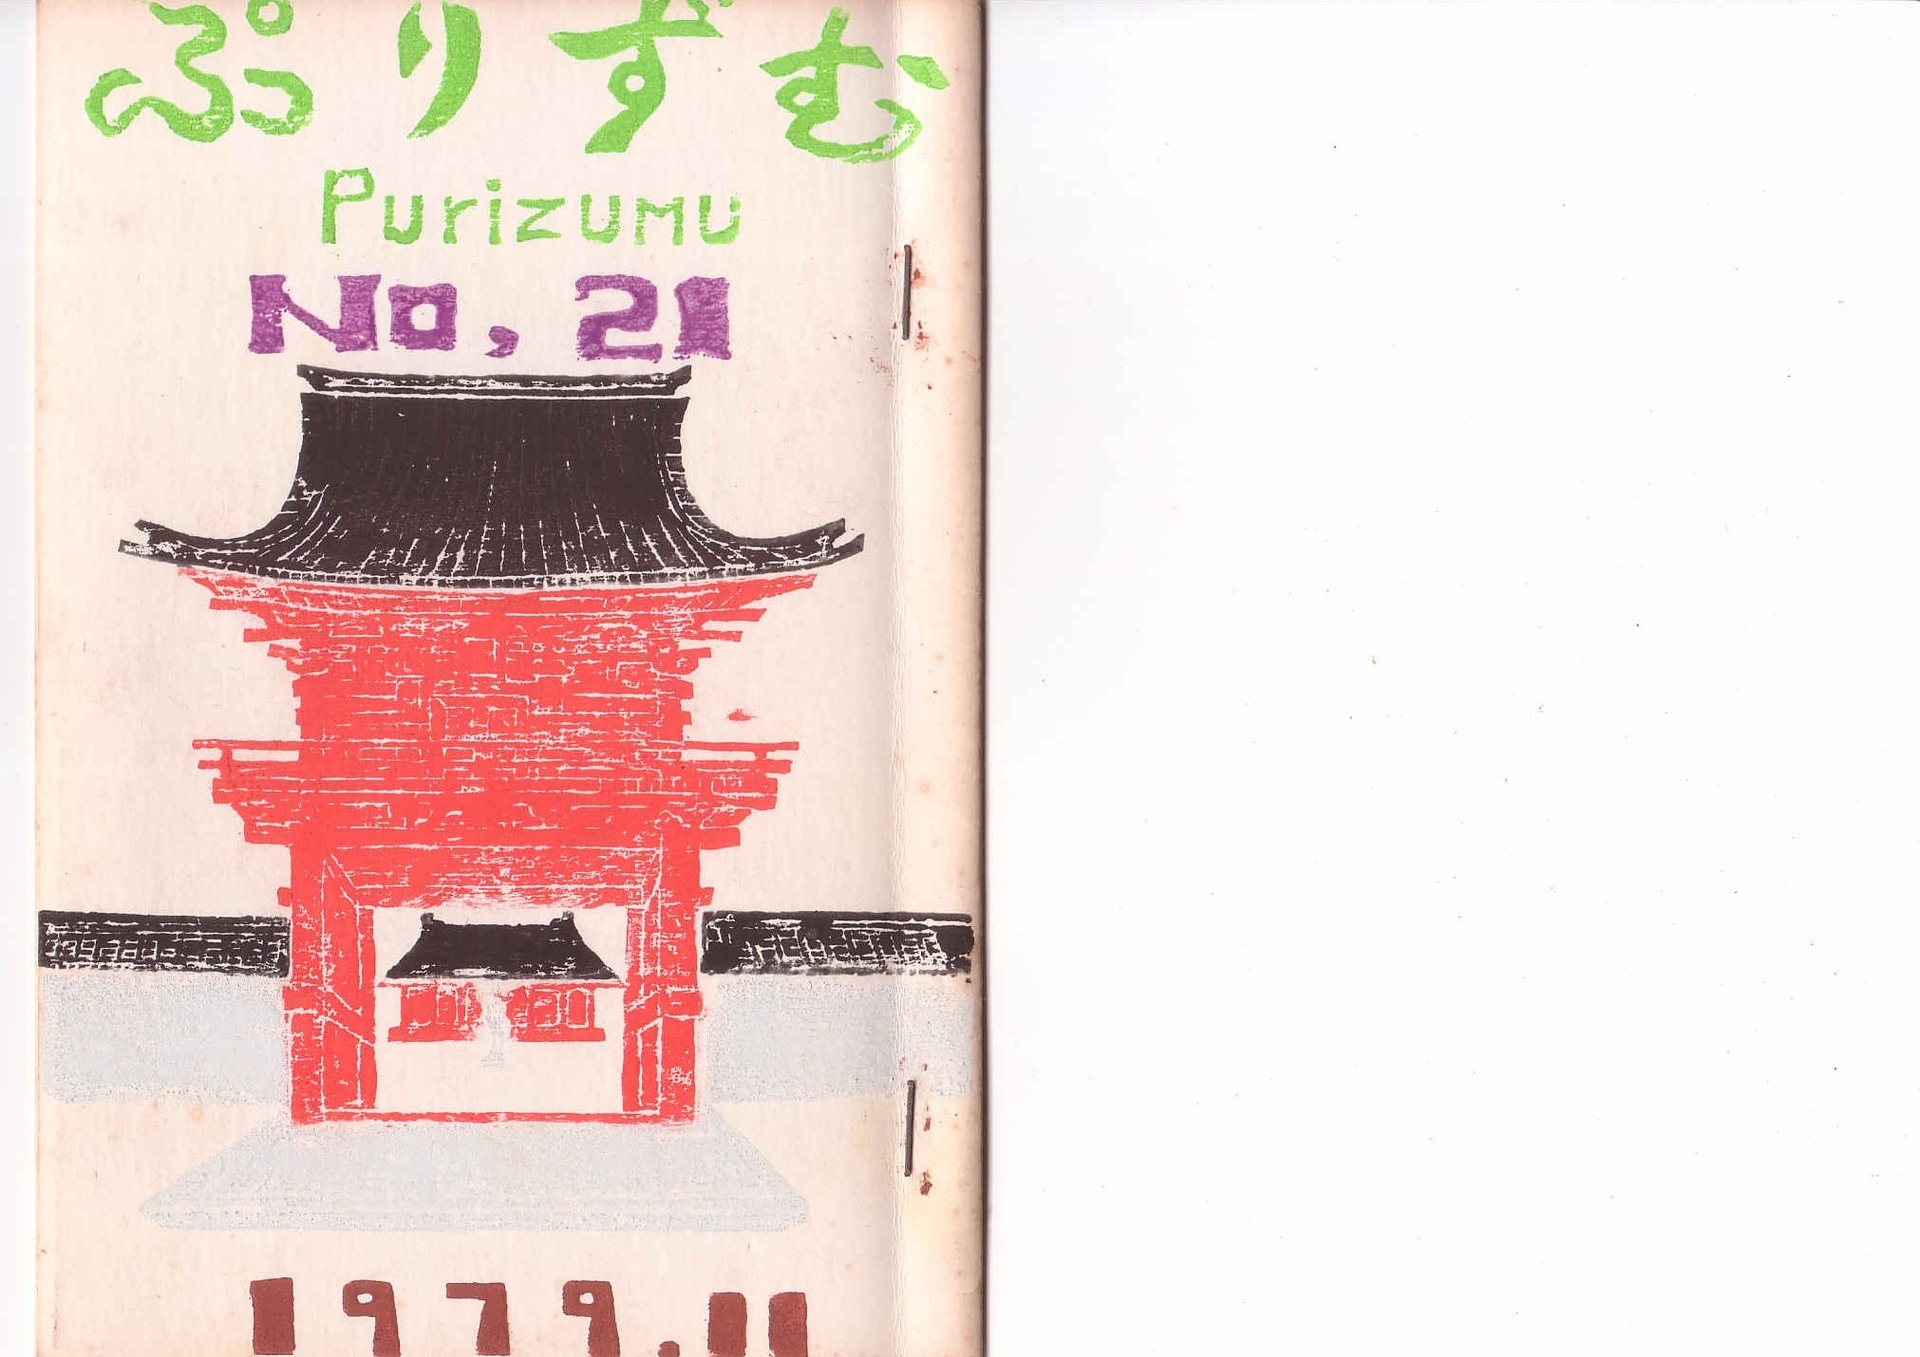 ぷりずむ
Purizumu
No, 21
1979.11